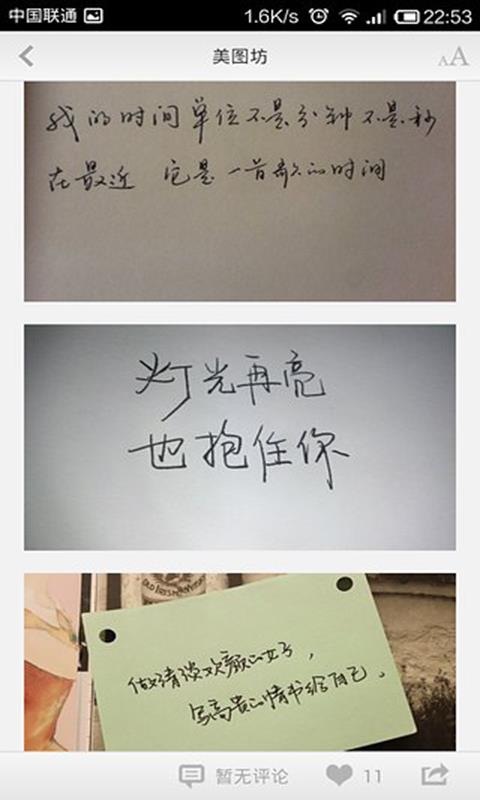 中国联通 1.6K/s 22:53
美图坊 AA
我的时间单位不是分钟不是秒
在最近 它是一首歌的时间
灯光再亮
也抱住你
做清淡欢颜的女子，
写高贵的情书给自己。
暂无评论 11